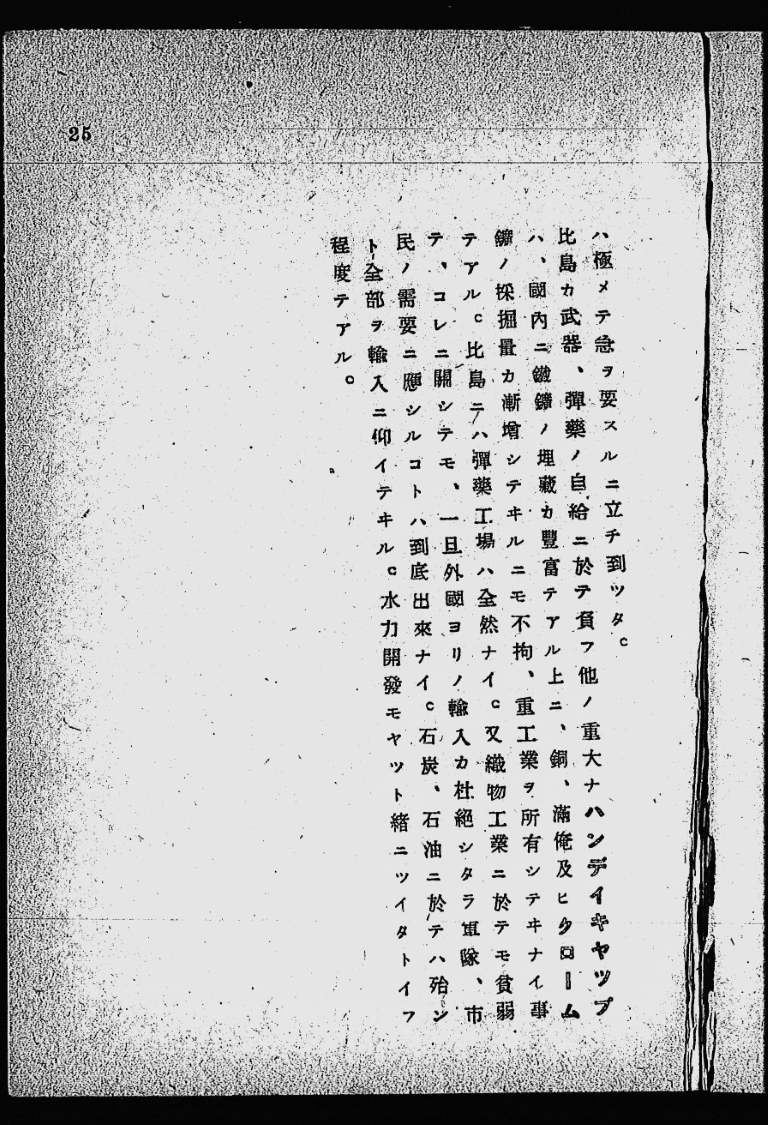 25
ハ極メテ急ヲ要スルニ立チ到ツタ。
比島カ武器、彈藥ノ自給ニ於テ負フ他ノ重大ナハンデイキヤツプ
ハ、國內ニ鐵鑛ノ埋藏カ豐富テアル上ニ、銅、滿俺及ヒクローム
鑛ノ採掘量カ漸增シテヰルニモ不拘、重工業ヲ所有シテヰナイ事
テアル。比島ニハ彈藥工場ハ全然ナイ。又織物工業ニ於テモ貧弱
テ、コレニ關シテモ、一旦外國ヨリノ輸入カ杜絕シタラ軍隊、市
民ノ需要ニ應シルコトハ到底出來ナイ。石炭、石油ニ於テハ殆ン
ト全部ヲ輸入ニ仰イテヰル。水力開發モヤツト緖ニツイタトイフ
程度テアル。